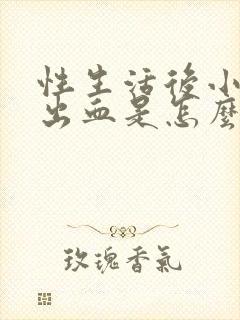 性生活後小
出血是怎麼
玫瑰香氣